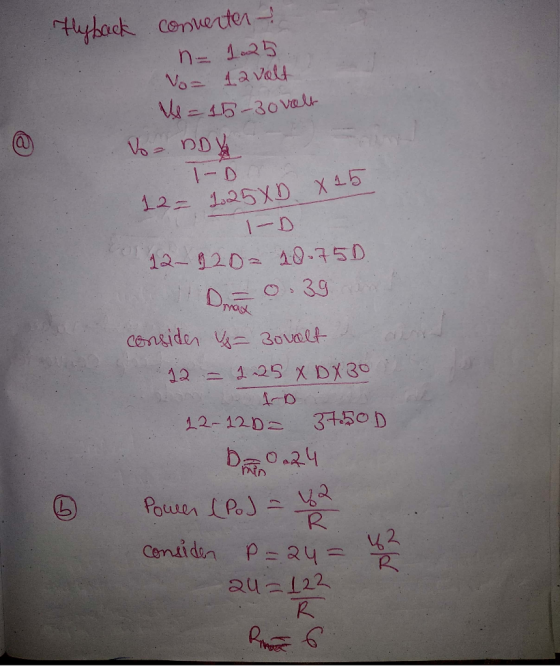 Flyback converter-:
n = 1.25
Vo = 12 volt
Vs = 15-30 volt
(a)
Vo = nDVs / 1-D
12 = 1.25×D ×15 / 1-D
12-12D = 18.75D
Dmax = 0.39
consider Vs = 30 volt
12 = 1.25 × D×30 / 1-D
12-12D = 37.50 D
Dmin = 0.24
(b) Power (Po) = Vo2 / R
consider P = 24 = Vo2 / R
24 = 122 / R
Rmax = 6